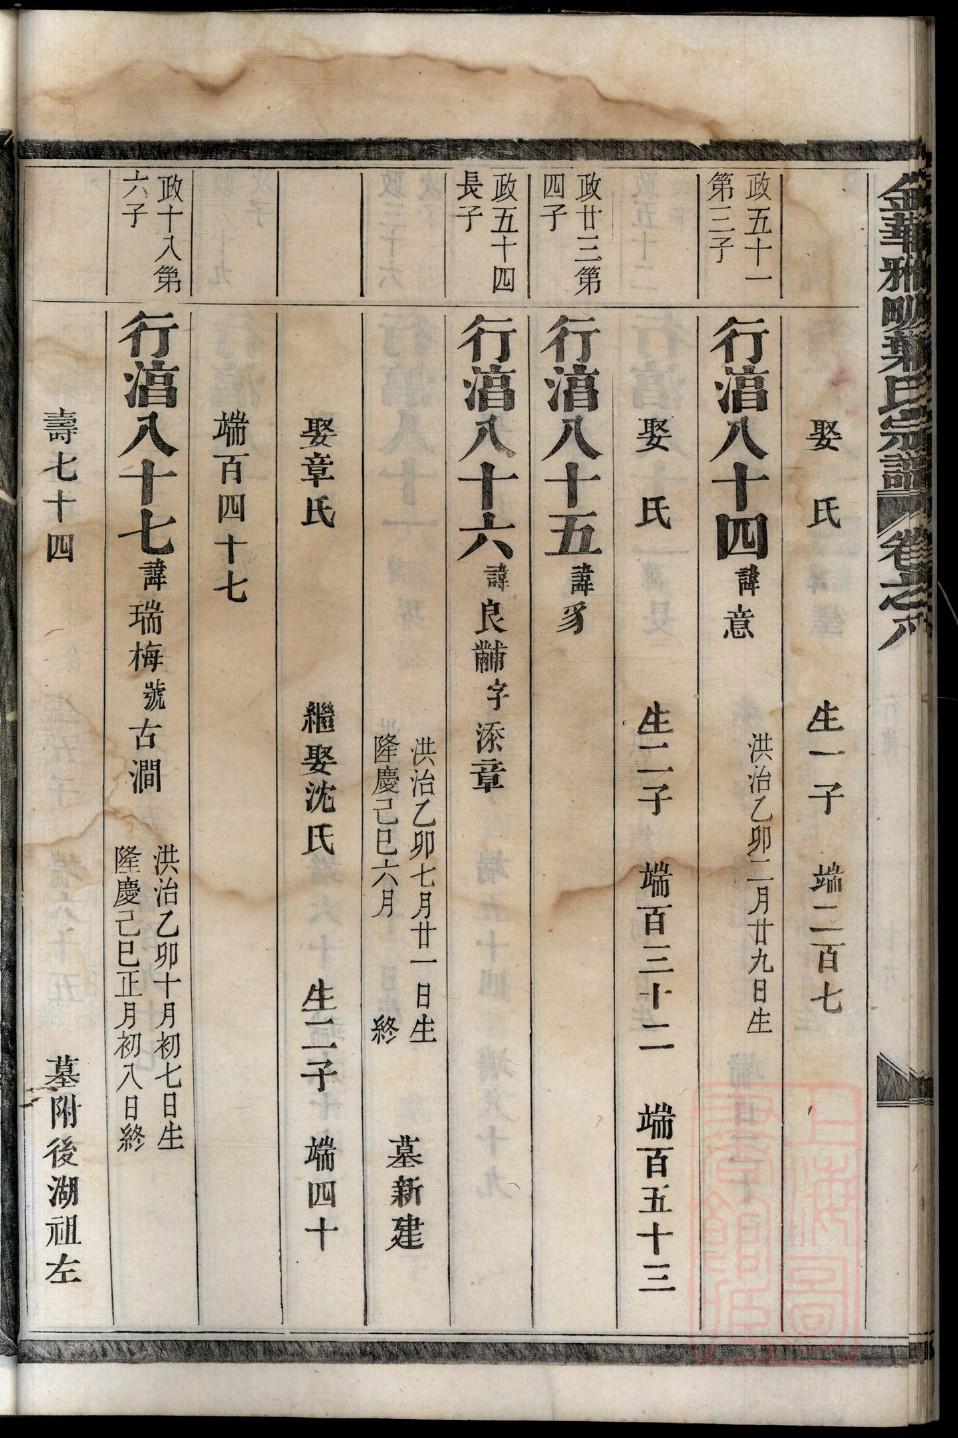 金華雅畈葉氏宗譜 卷之八
娶 氏 生一子 端二百七
政五十一第三子
行湻八十四 諱意 洪治乙卯二月廿九日生
娶 氏 生二子 端百三十二 端百五十三
政廿三第四子
行湻八十五 諱豸
政五十四長子
行湻八十六 諱良黼字添章
洪治乙卯七月廿一日生
隆慶己巳六月 終
墓新建
娶章氏 繼娶沈氏 生二子 端四十
端百四十七
政十八第六子
行湻八十七 諱瑞梅號古澗
洪治乙卯十月初七日生
隆慶己巳正月初八日終
壽七十四 墓附後湖祖左
上海圖書館藏